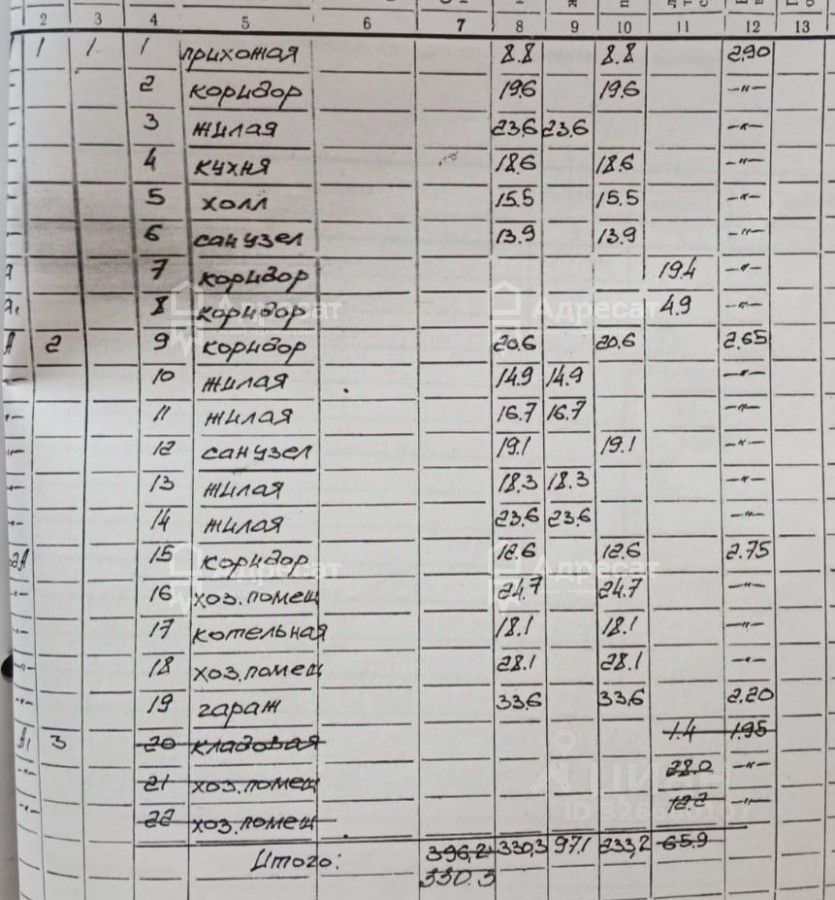 2 3 4 5 6 7 8 9 10 11 12 13
1 1 1 прихожая 8.8 8.8 2.90
2 коридор 19.6 19.6 -"-
3 жилая 23.6 23.6 -"-
4 кухня 18.6 18.6 -"-
5 холл 15.5 15.5 -"-
6 санузел 13.9 13.9 -"-
7 коридор 19.4 -"-
8 коридор 4.9 -"-
А 2 9 коридор 20.6 20.6 2.65
-"- 10 жилая 14.9 14.9 -"-
-"- 11 жилая 16.7 16.7 -"-
-"- 12 санузел 19.1 19.1 -"-
-"- 13 жилая 18.3 18.3 -"-
-"- 14 жилая 23.6 23.6 -"-
15 коридор 12.6 12.6 2.75
-"- 16 хоз.помещ 24.7 24.7 -"-
-"- 17 котельная 18.1 18.1 -"-
-"- 18 хоз.помещ 28.1 28.1 -"-
-"- 19 гараж 33.6 33.6 2.20
А1 3 20 кладовая 1.4 1.95
-"- 21 хоз.помещ 28.0 -"-
-"- 22 хоз.помещ 12.2 -"-
Итого: 396,2 330,3 97.1 233,2 65.9
330.3
Адресат
Адресат
Адресат
Адресат